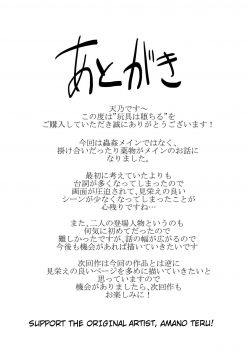 あとがき
天乃です～
この度は"玩具は堕ちる"を
ご購入していただき誠にありがとうございます！
今回は蟲姦メインではなく、
掛け合いだったり薬物がメインのお話に
なりました。
最初に考えていたよりも
台詞が多くなってしまったので
画面が圧迫されて、見栄えの良い
シーンが少なくなってしまったことが
心残りですね…
また、二人の登場人物というのも
何気に初めてだったので
難しかったですが、話の幅が広がるので
今後も機会があれば描いていきたい！
次回作は今回の作品とは逆に
見栄えの良いページを多めに描いていきたいと
思っていますので
機会がありましたら、次回作も
お楽しみに！
SUPPORT THE ORIGINAL ARTIST, AMANO TERU!